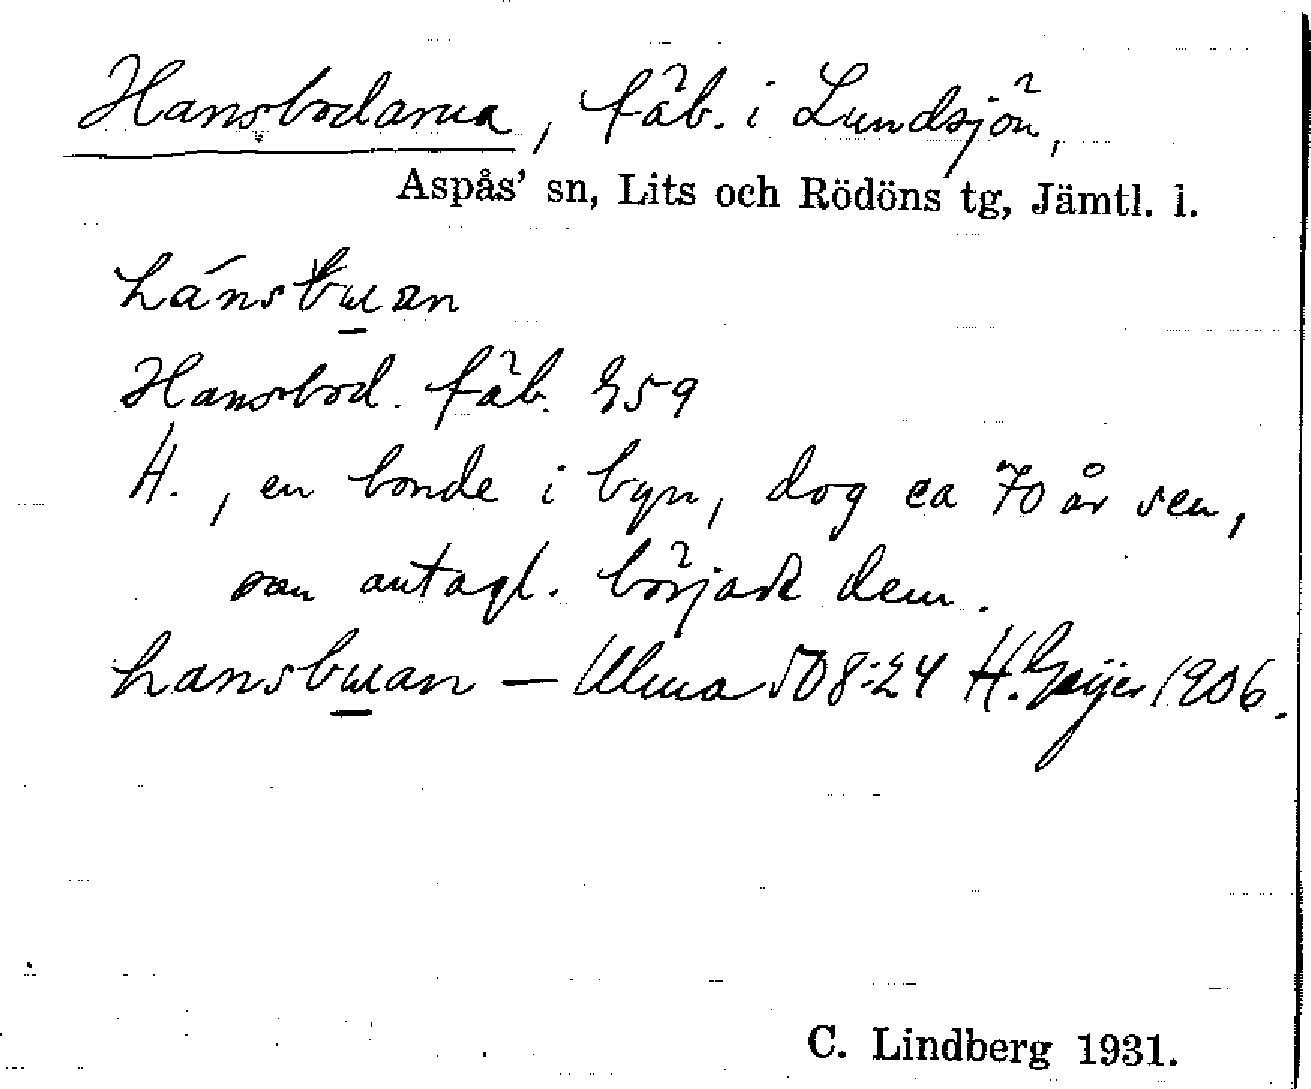 Hansbodarna, fäb. i Lundsjön,
Aspås' sn, Lits och Rödöns tg, Jämtl. l.
hánsbuan
Hansbod. fäb. 859
H., en bonde i byn, dog ca 70 år sen,
som antagl. börjadt dem.
hansbuan — Ulma 508:24 H. Geijer 1906.
C. Lindberg 1931.